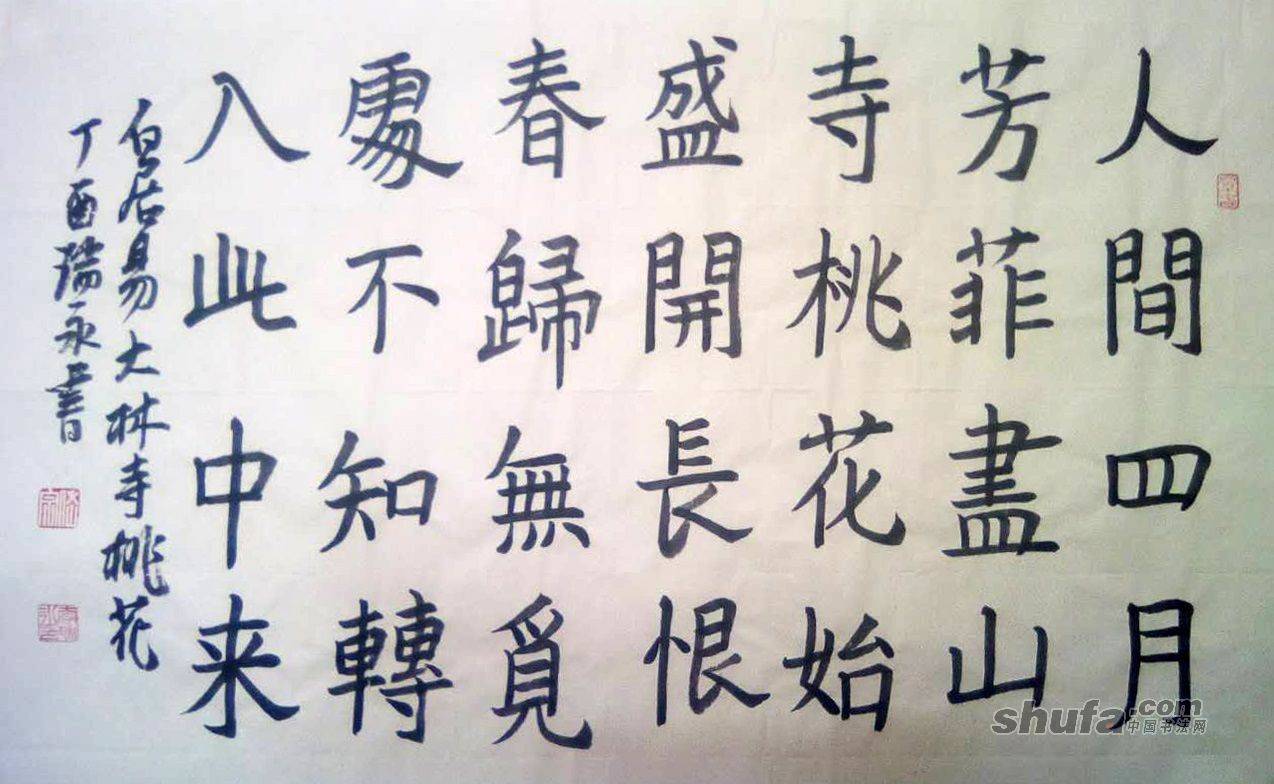 人間四月
芳菲盡山
寺桃花始
盛開長恨
春歸無覓
處不知轉
入此中来
白居易大林寺桃花
丁酉瑞永書
shufa.com
中国书法网